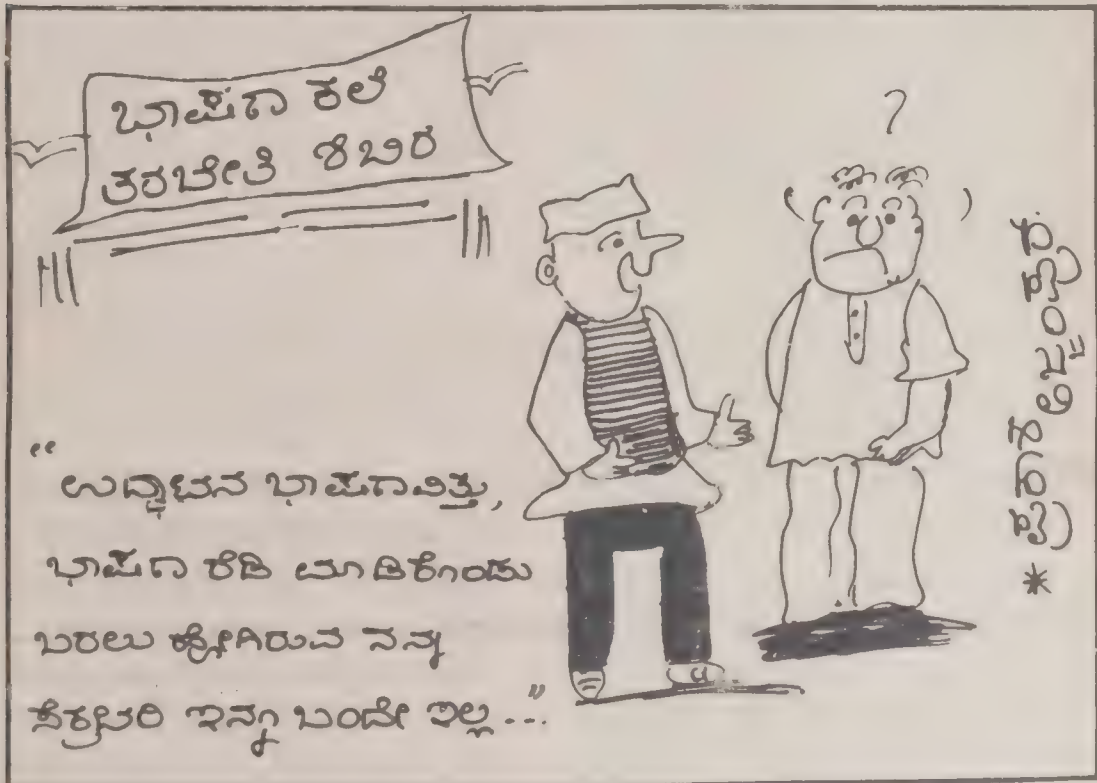 ಭಾಷಣ ಕಲೆ
ತರಬೇತಿ ಶಿಬಿರ
?
"ಉದ್ಘಾಟನ ಭಾಷಣವಿತ್ತು,
ಭಾಷಣ ರೆಡಿ ಮಾಡಿಕೊಂಡು
ಬರಲು ಹೋಗಿರುವ ನನ್ನ
ಸೆಕ್ರಟರಿ ಇನ್ನೂ ಬಂದೇ ಇಲ್ಲ..."
* ಪ್ರಕಾಶ